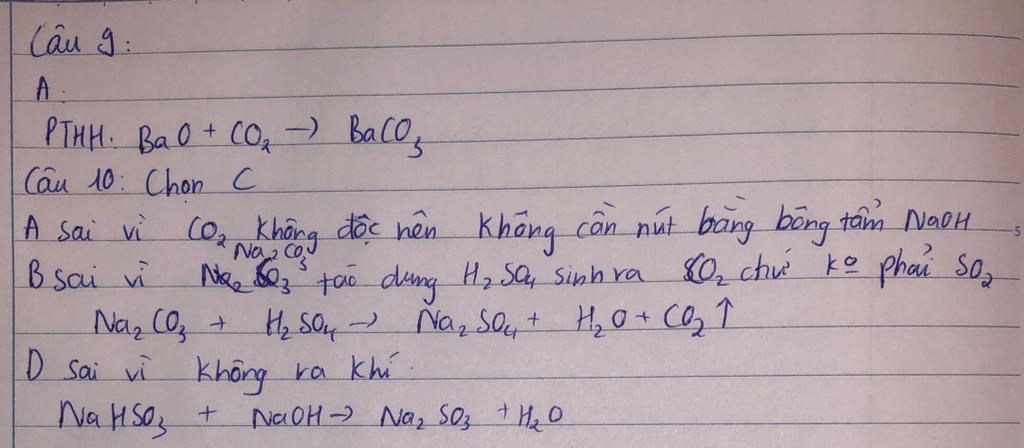 Câu 9:
A:
PTHH: BaO + CO₂ → BaCO₃
Câu 10: Chọn C
A sai vì CO₂ không độc nên không cần nút bằng bông tẩm NaOH
Na₂CO₃
B sai vì tác dụng H₂SO₄ sinh ra CO₂ chứ ko phải SO₂
Na₂CO₃ + H₂SO₄ → Na₂SO₄ + H₂O + CO₂↑
D sai vì không ra khí.
NaHSO₃ + NaOH → Na₂SO₃ + H₂O